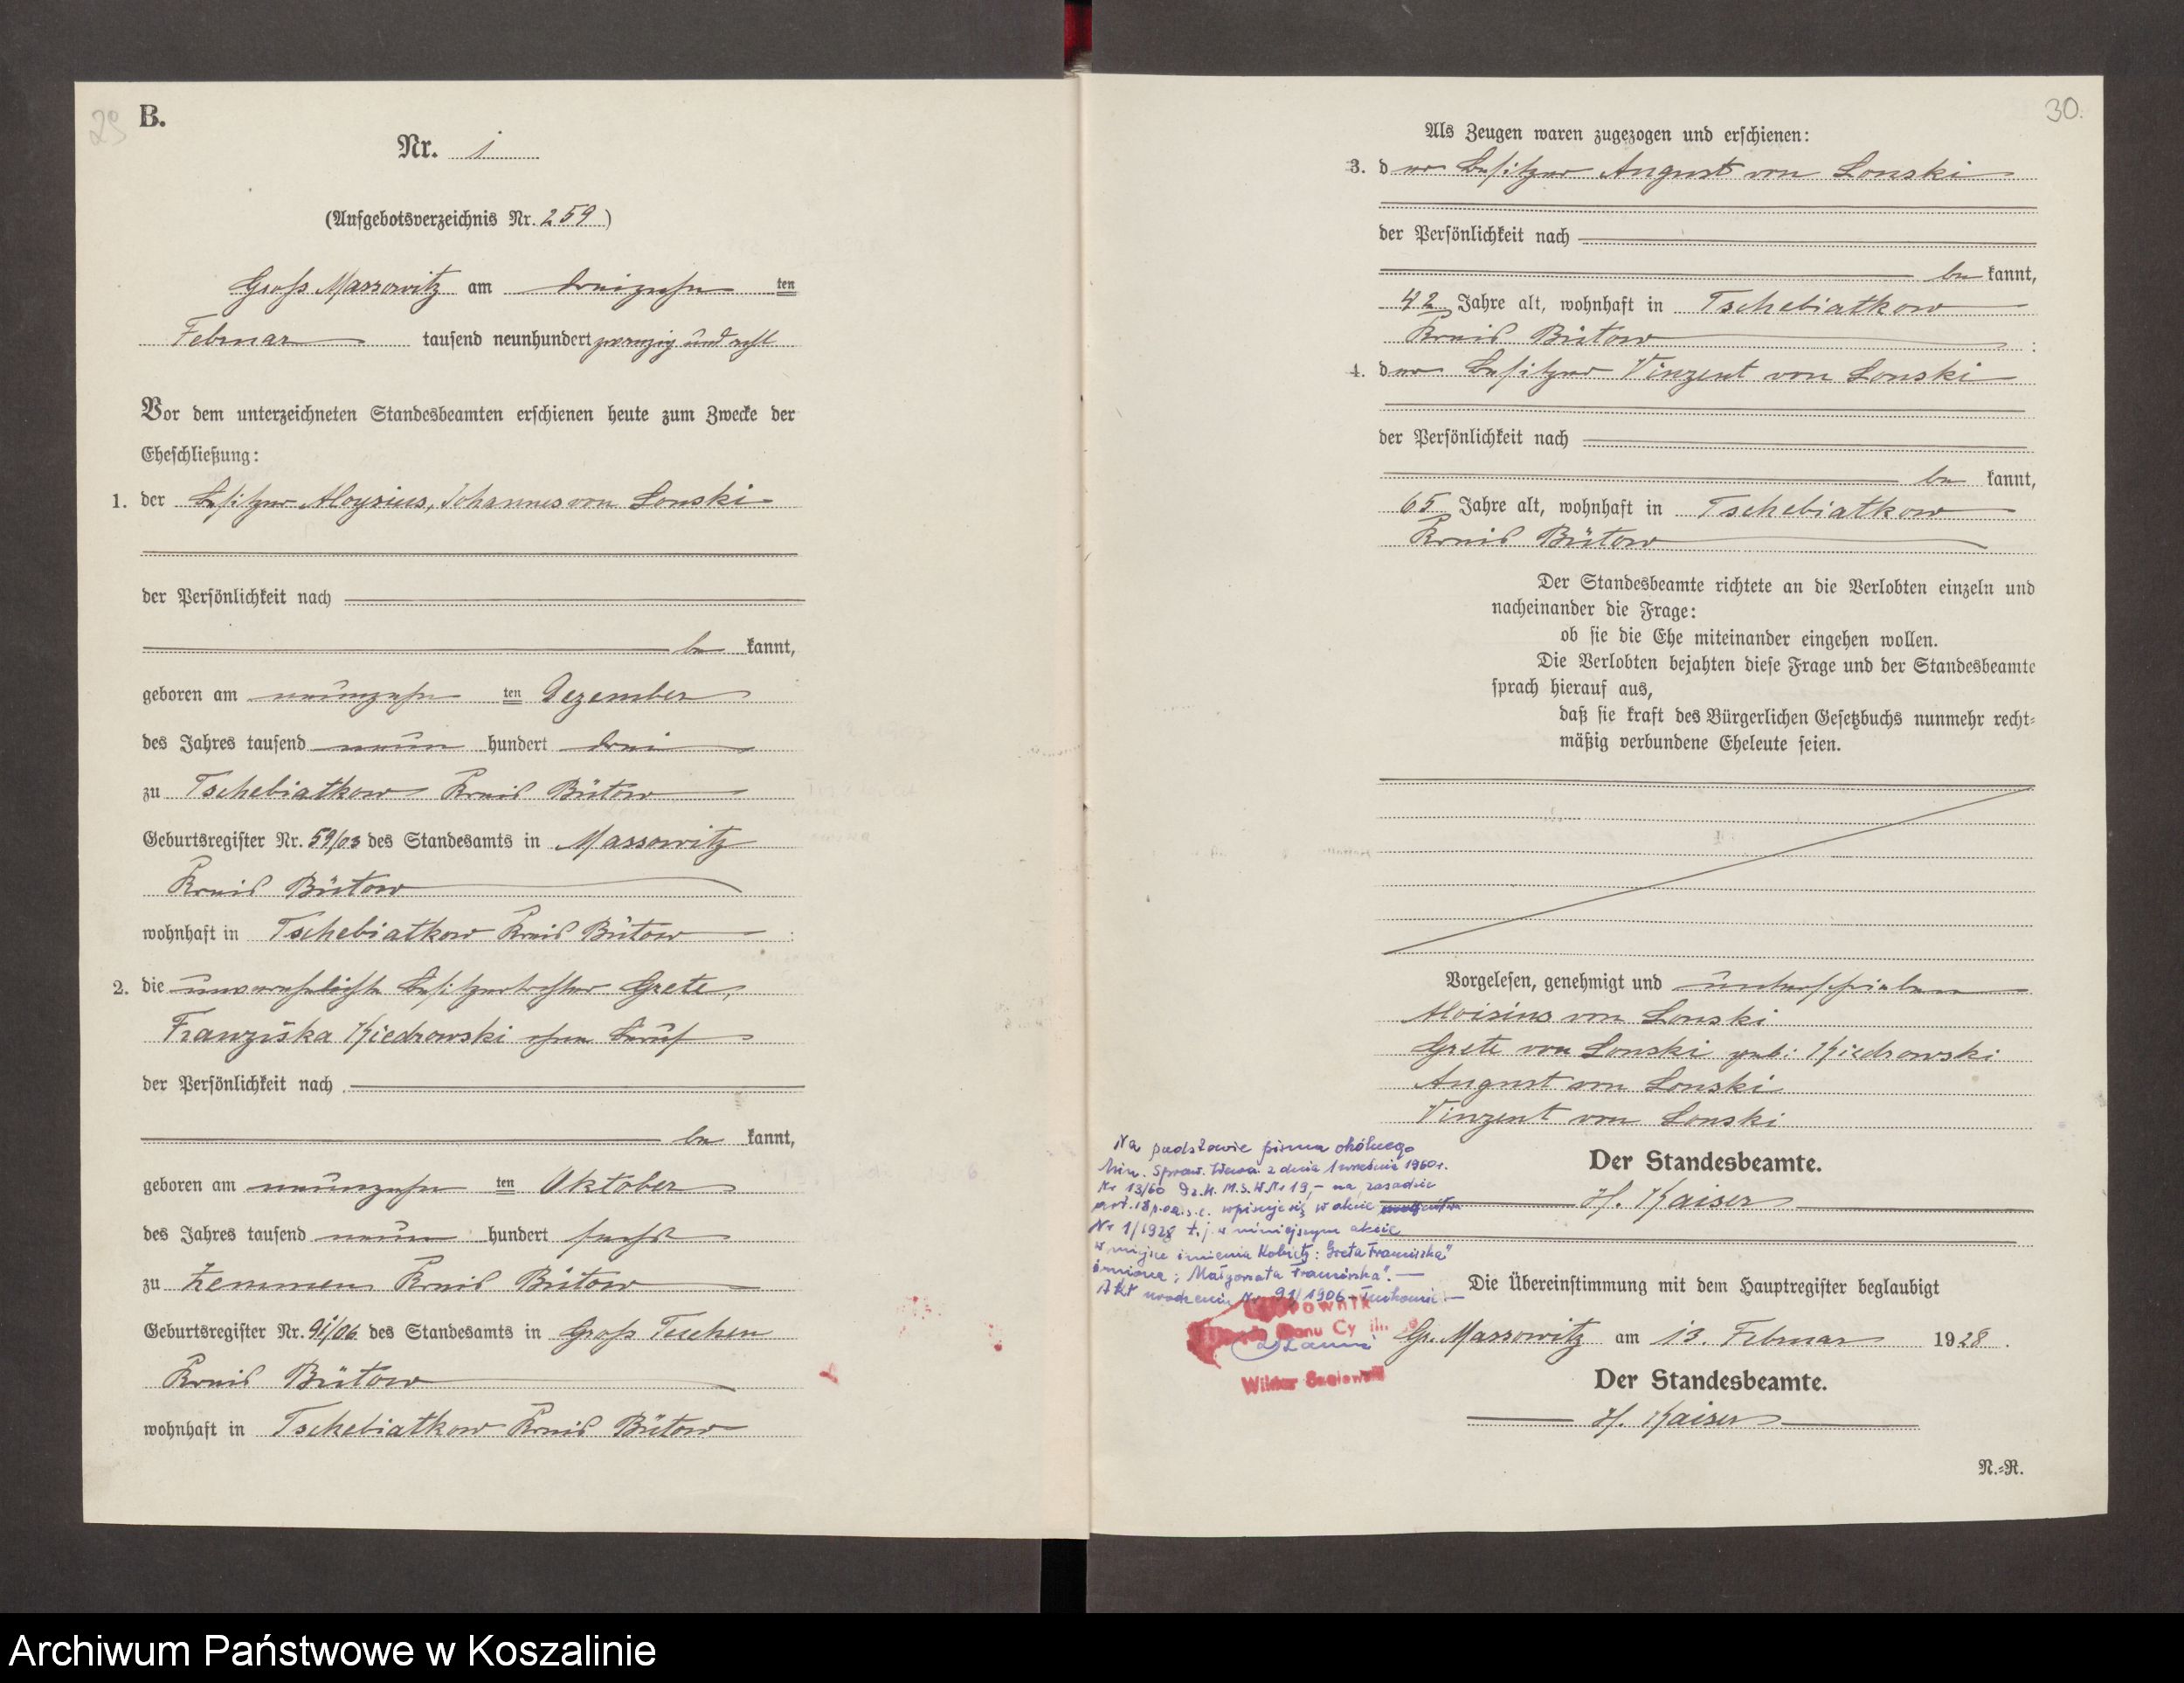 29
B.
Nr. 1
(Aufgebotsverzeichnis Nr. 259)
Gross Massowitz am dreizehn ten
Februar tausend neunhundert zwanzig und acht
Vor dem unterzeichneten Standesbeamten erschienen heute zum Zwecke der
Eheschließung:
1. der Besitzer Aloysius, Johannes von Lonski
der Persönlichkeit nach
be kannt,
geboren am neunzehn ten Dezember
des Jahres tausend neun hundert drei
zu Tschebiatkow Kreis Bütow
Geburtsregister Nr. 59/03 des Standesamts in Massowitz
Kreis Bütow
wohnhaft in Tschebiatkow Kreis Bütow :
2. die unverehelichte Besitzertochter Grete,
Franziska Kiedrowski ohne Beruf
der Persönlichkeit nach
be kannt,
geboren am neunzehn ten Oktober
des Jahres tausend neun hundert sechs
zu Zemmen Kreis Bütow
Geburtsregister Nr. 91/06 des Standesamts in Gross Tuchen
Kreis Bütow
wohnhaft in Tschebiatkow Kreis Bütow
30.
Als Zeugen waren zugezogen und erschienen:
3. der Besitzer August von Lonski
der Persönlichkeit nach
be kannt,
42 Jahre alt, wohnhaft in Tschebiatkow
Kreis Bütow :
4. der Besitzer Vinzent von Lonski
der Persönlichkeit nach
be kannt,
65 Jahre alt, wohnhaft in Tschebiatkow
Kreis Bütow
Der Standesbeamte richtete an die Verlobten einzeln und
nacheinander die Frage:
ob sie die Ehe miteinander eingehen wollen.
Die Verlobten bejahten diese Frage und der Standesbeamte
sprach hierauf aus,
daß sie kraft des Bürgerlichen Gesetzbuchs nunmehr recht-
mäßig verbundene Eheleute seien.
Vorgelesen, genehmigt und unterschrieben
Aloisius von Lonski
Grete von Lonski geb: Kiedrowski
August von Lonski
Vinzent von Lonski
Der Standesbeamte.
H. Kaiser
Na podstawie pisma okólnego
Min. Spraw. Wewn. z dnia 1 września 1960 r.
Nr 13/60 Dz. U. M.S.W. Nr 19, - na zasadzie
art. 18 p.o.a.s.c. wpisuje się w akcie
Nr 1/1928 t.j. w niniejszym akcie
w miejsce imienia kobiety: "Greta Franciszka"
imiona: "Małgorzata Franciszka". -
Akt urodzenia Nr 91/1906 - Tuchomie -
Kierownik
Urzędu Stanu Cywiln.
Wiktor
Die Übereinstimmung mit dem Hauptregister beglaubigt
Gr. Massowitz am 13. Februar 1928.
Der Standesbeamte.
H. Kaiser
N.-R.
Archiwum Państwowe w Koszalinie